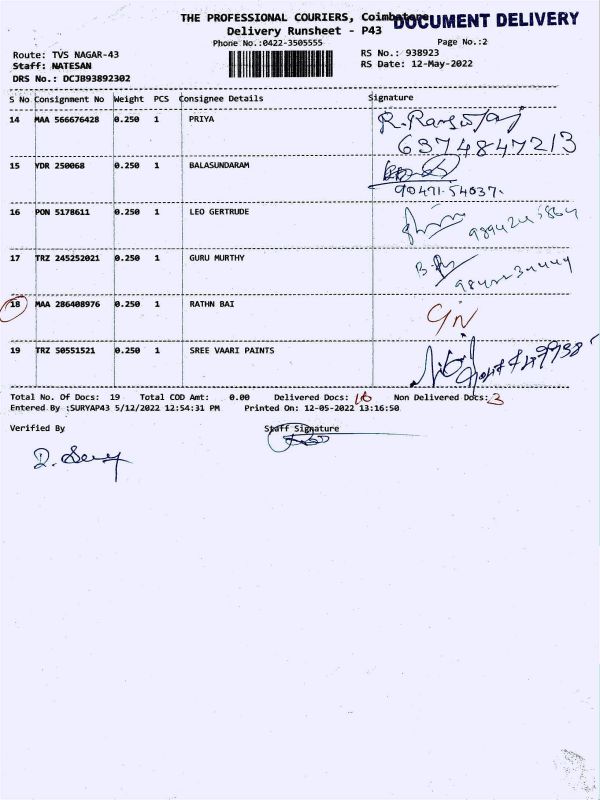 THE PROFESSIONAL COURIERS, Coimbatore
DOCUMENT DELIVERY
Delivery Runsheet - P43
Phone No.:0422-3505555
Page No.:2
Route: TVS NAGAR-43
RS No.: 938923
Staff: NATESAN
RS Date: 12-May-2022
DRS No.: DCJB93892302
S No Consignment No Weight PCS Consignee Details Signature
14 MAA 566676428 0.250 1 PRIYA
6374847213
15 YDR 250068 0.250 1 BALASUNDARAM
90471.54037.
16 PON 5178611 0.250 1 LEO GERTRUDE
17 TRZ 245252021 0.250 1 GURU MURTHY
18 MAA 286408976 0.250 1 RATHN BAI
19 TRZ 50551521 0.250 1 SREE VAARI PAINTS
Total No. Of Docs: 19 Total COD Amt: 0.00 Delivered Docs: 16 Non Delivered Docs: 3
Entered By :SURYAP43 5/12/2022 12:54:31 PM Printed On: 12-05-2022 13:16:50
Verified By Staff Signature